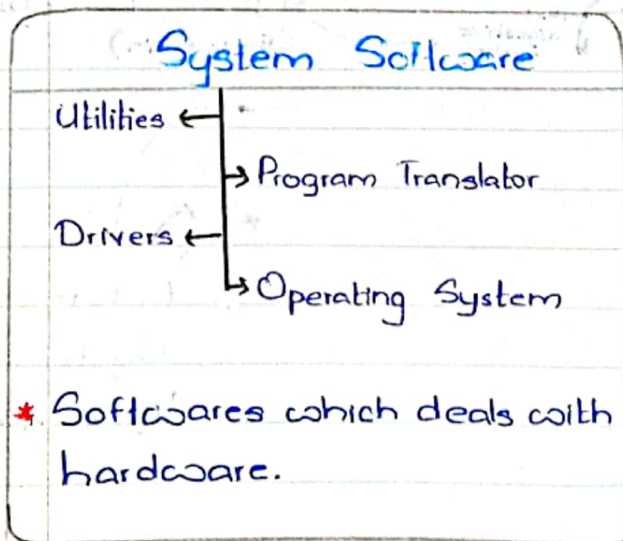 System Software
Utilities ←
→ Program Translator
Drivers ←
→ Operating System
* Softwares which deals with
hardware.